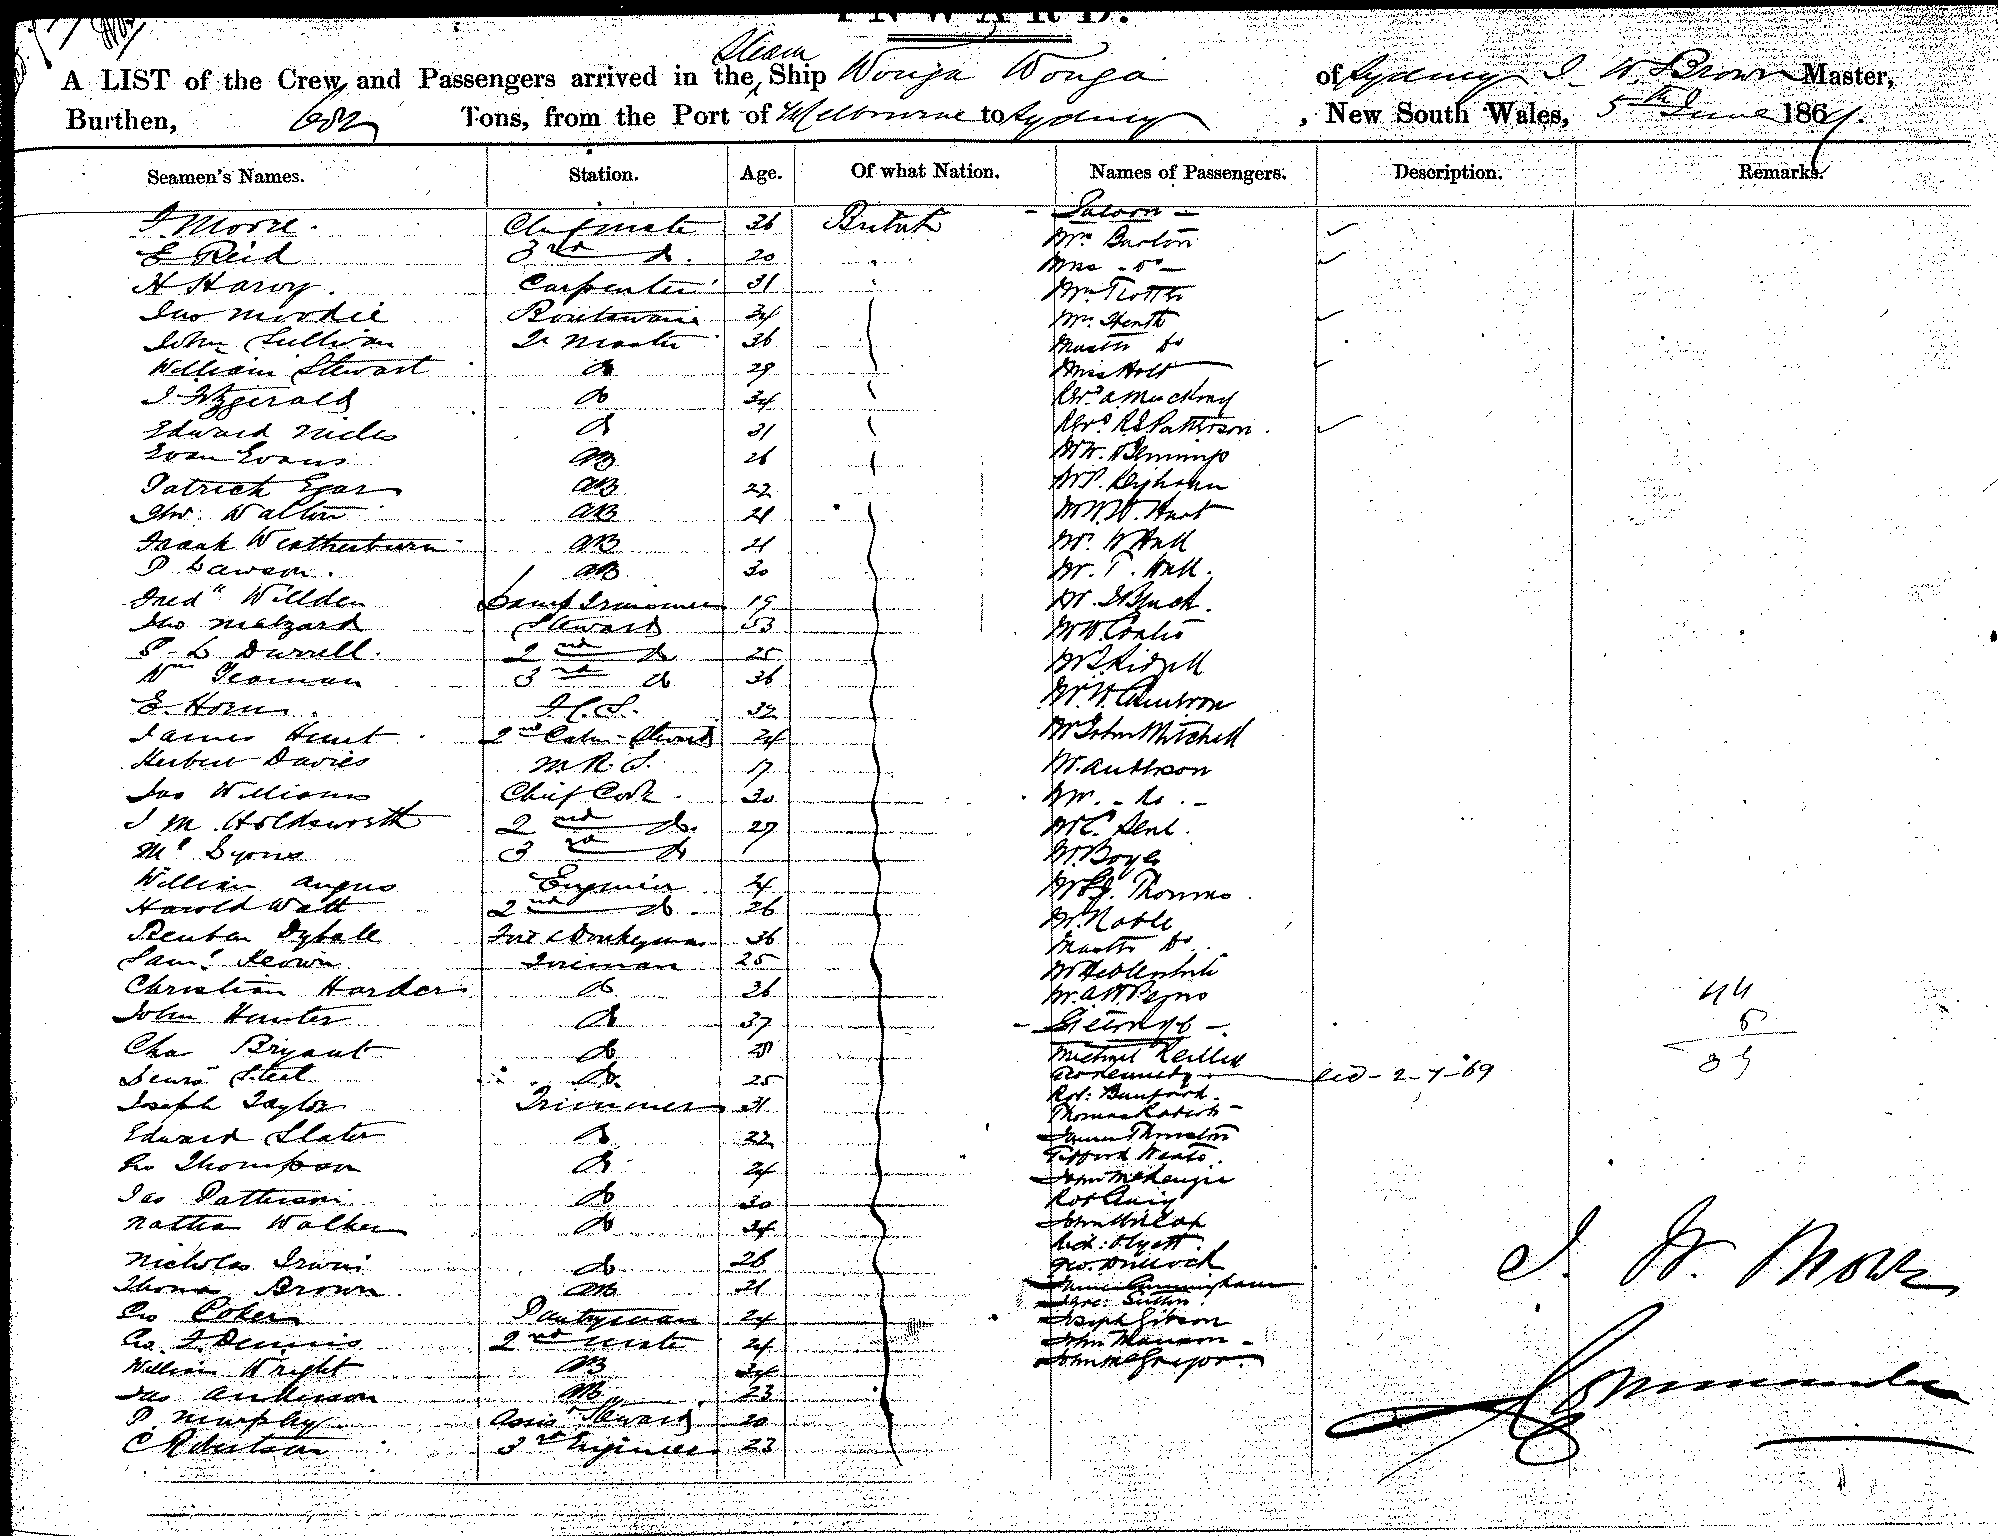 INWARD.
A LIST of the Crew and Passengers arrived in the Steam Ship Wonga Wonga of Sydney J W Brown Master,
Burthen, 682 Tons, from the Port of Melbourne to Sydney, New South Wales, 5th June 186
Seamen's Names. Station. Age. Of what Nation. Names of Passengers. Description. Remarks.
- Saloon -
J. Moore. Chf mate 36 British
E Reid 3rd do. 20
H Harvy. Carpenter 31
Jas Moodie 34
John Sullivan Qr Master 36
William Stewart do 29
J Fitzgerald do 34
Edward Miles do 31
Evan Evans AB 26
Patrick Egar AB 22
Jno. Walton AB 21
Frank Weatherburn AB 21
P Dawson. AB 30
Fredk Willden Lamp Trimmer 19
Jno Malzard Steward 53
P. L Durrell. 2nd do 25
Wm Yeoman 3rd do 36
E. Horn. F.C.S. 32
James Hunt 2nd Cabin Steward 24
Herbert Davies M.R.S. 17
Jas Williams Chief Cook 30
J M Holdsworth 2nd do. 27
Mc Lyons 3rd do
William Angus Engineer
Harold Watt 2nd do. 26
Reuben Dyball Fire & Donkeyman 36
Saml Keown Fireman 25
Christian Harder do 26
John Hunter do 37
Chas Bryant do
Steel do. 25
Joseph Taylor Trimmer 31
Edward Slater do 22
Geo Thompson do 24
Jas Patterson do 30
Nathan Walker do 34
Nicholas Irwin do 26
Thomas Brown. AB 21
Geo Poker Pantryman 24
Geo. F. Dennis 2nd mate 24
William Wright AB 34
Jas Anderson AB 23
P. Murphy Assist Steward 20
C Robertson 3rd Engineer 23
Mr Barton
Mrs - do -
Mr Trotter
Mrs Heath
Master do
Miss Holt
Revd A Mackray
Revd R S Patterson.
Mr W. Hemmings
Mr P.
Mr W. W. Hart
Mr. W Hall
Mr. T. Hall.
Mr.
Mr W Coates
Mr
Mr. W. Cameron
Mr John Mitchell
Mr. Anderson
Mr. - do. -
Mr C.
Mr Boyle
Mr Thomas
Mr. Noble
Master do.
Mr
Mr. A W
- Steerage -
Michael Reilley
Geo Kennedy
Rob: Bamford.
Thomas
James Thornton
Gifford
John McKenzie
Rob Craig
John
Geo. Bullock
Cunningham
Sutton.
Joseph Gibson
John Manson
John McGregor.
44
5
J. W. Brown
Commander